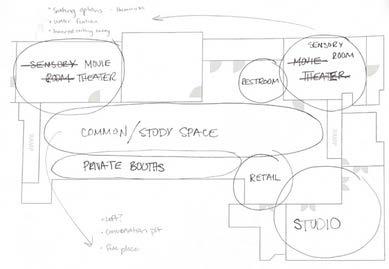 · Seating options -
· Water feature
SENSORY
SENSORY MOVIE
ROOM THEATER
MOVIE ROOM
THEATER
RESTROOM
COMMON/STUDY SPACE
RAMP
RAMP
PRIVATE BOOTHS
RETAIL
STUDIO
· Loft?
· Conversation pit
· Fire place